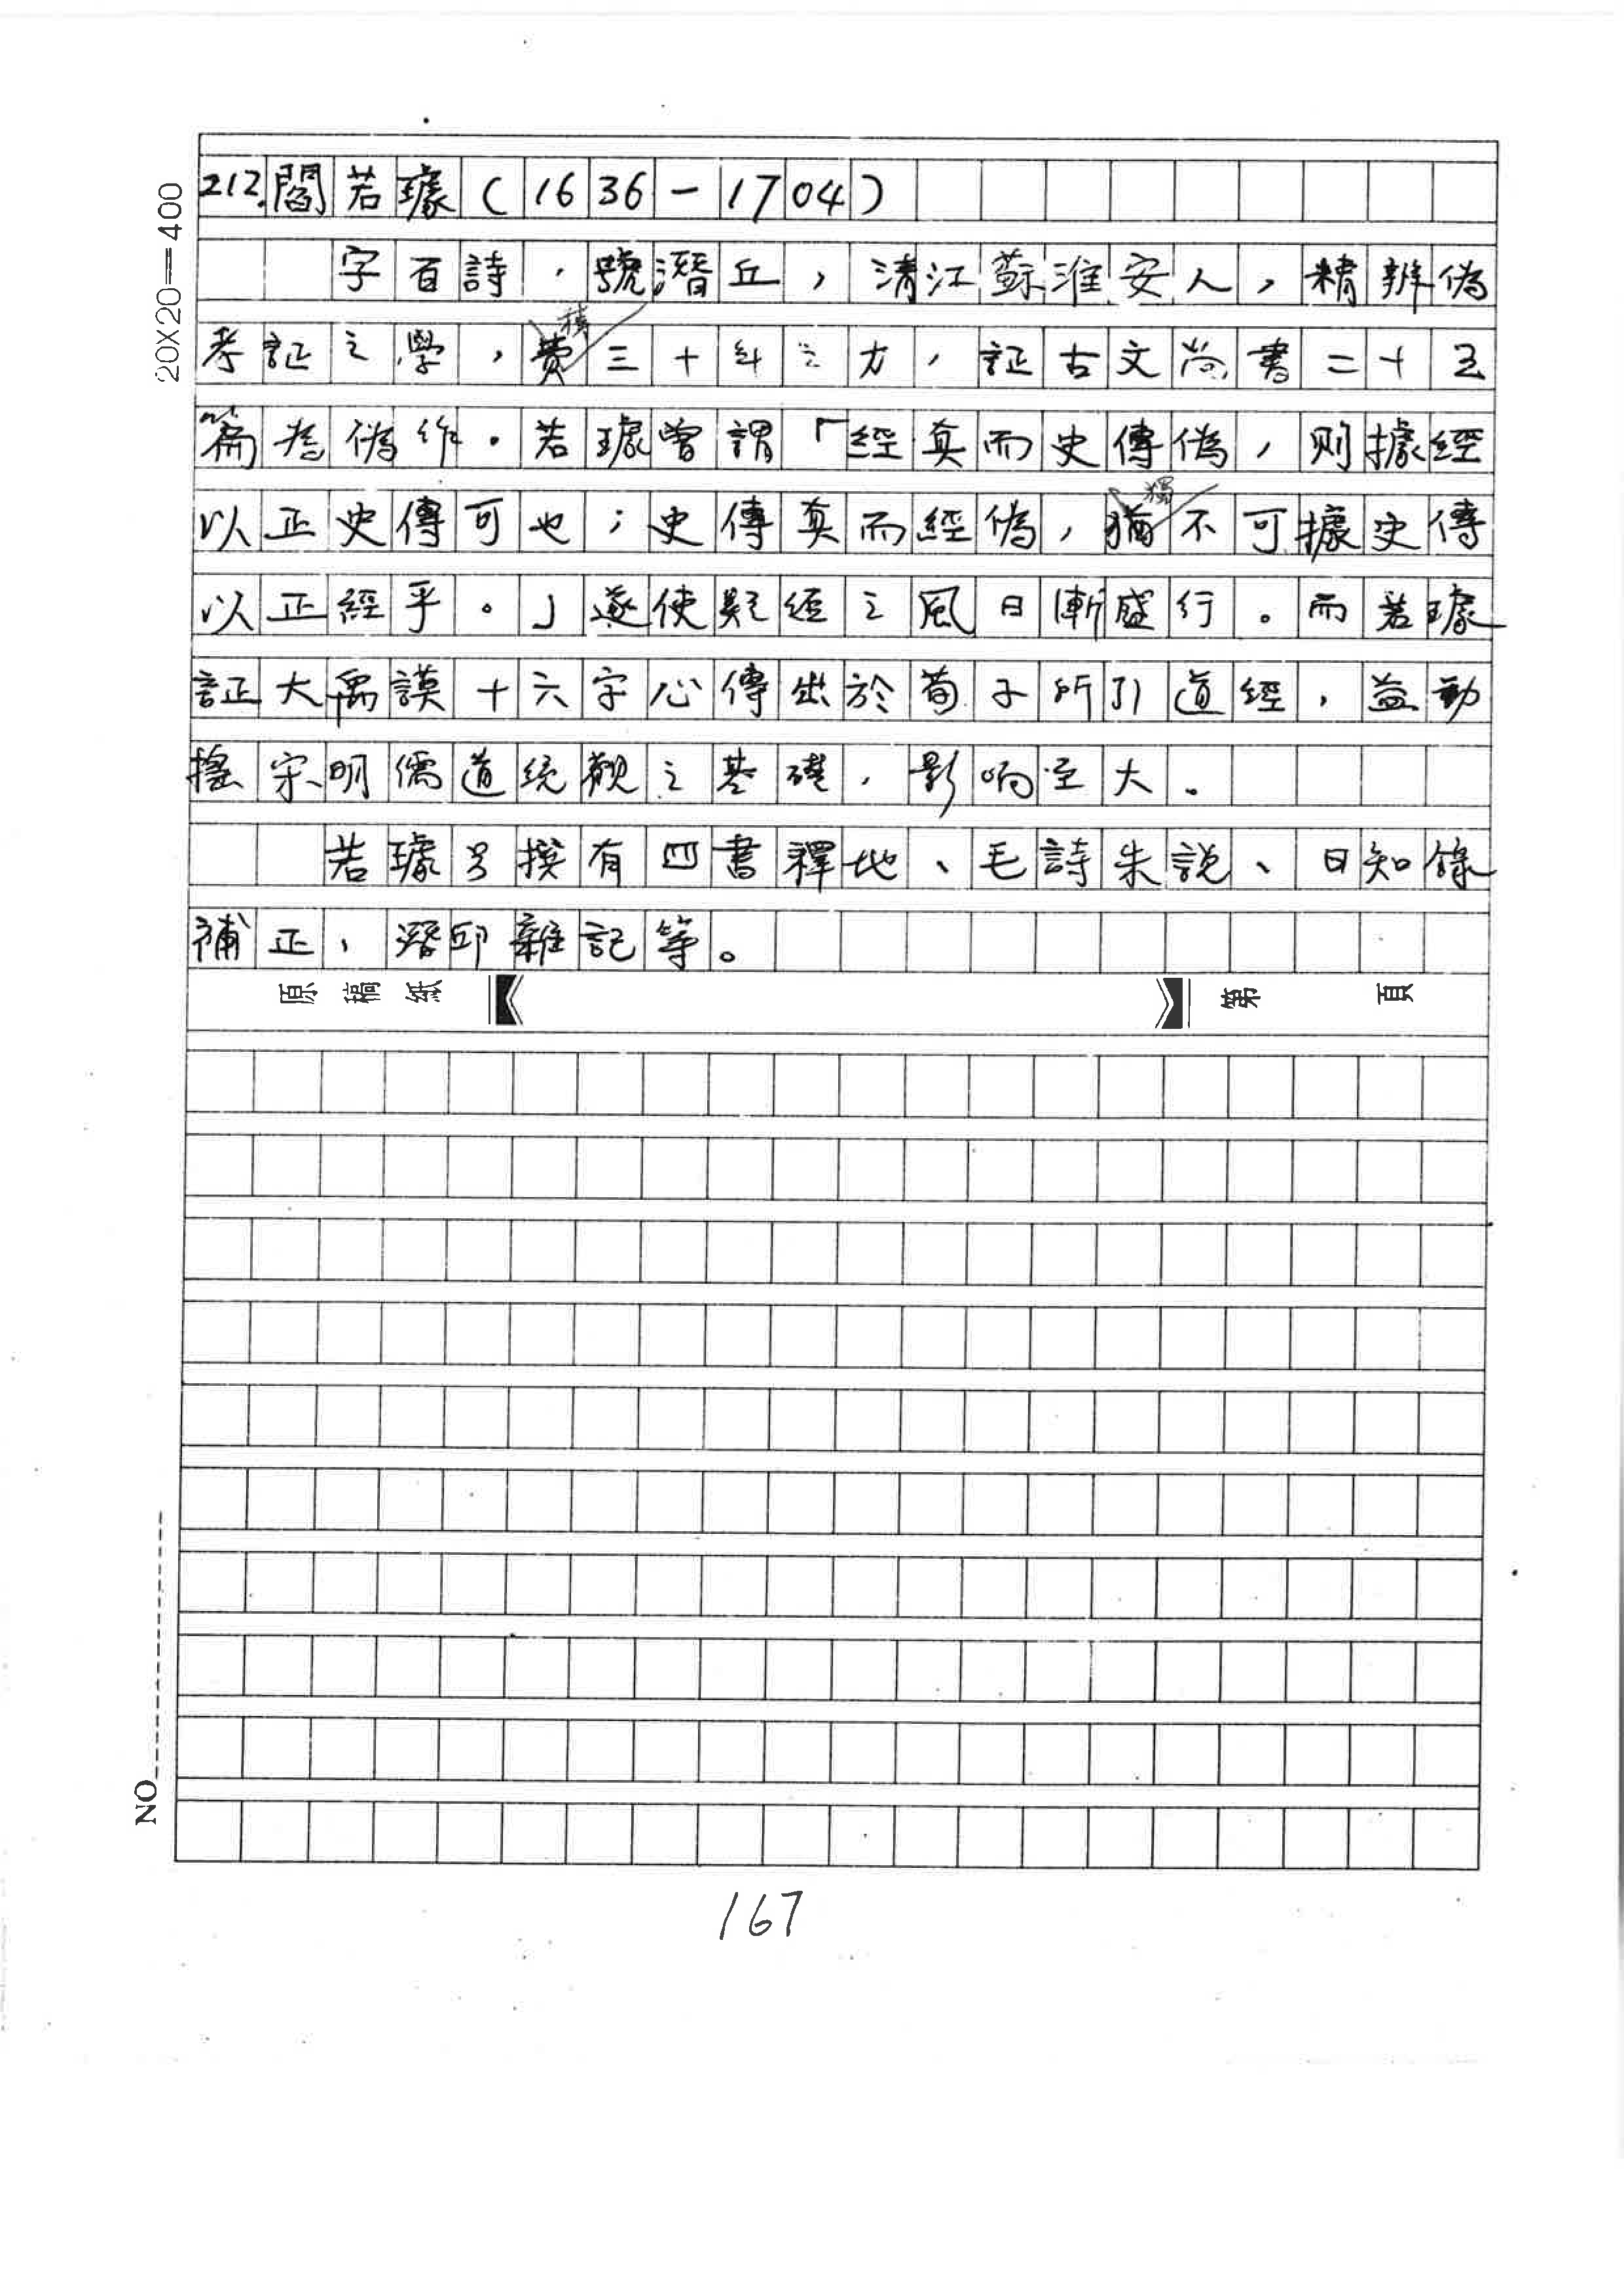 20X20=400
212.閻若璩(1636-1704)
字百詩,號潛丘,清江蘇淮安人,精辨偽
積
考証之學,費三十年之力,証古文尚書二十五
篇為偽作。若璩曾謂「經真而史傳偽,則據經
獨
以正史傳可也;史傳真而經偽,猶不可據史傳
以正經乎。」遂使疑經之風日漸盛行。而若璩
証大禹謨十六字心傳出於荀子所引道經,益動
搖宋明儒道統觀之基礎,影响至大。
若璩另撰有四書釋地、毛詩朱說、日知錄
補正、潛邱雜記等。
原稿紙 第 頁
NO
167